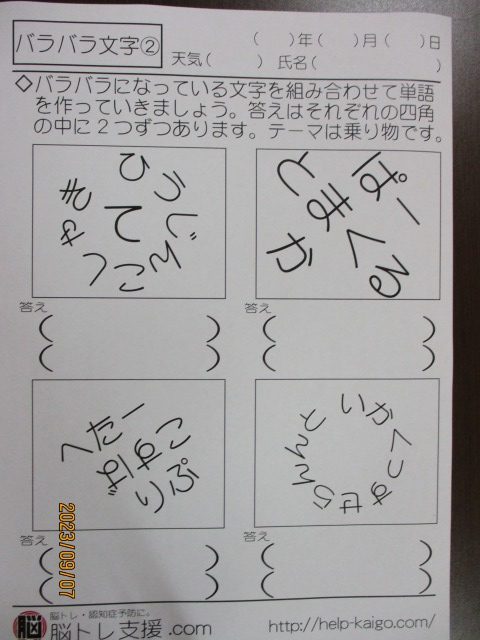 バラバラ文字②
(　)年(　)月(　)日
天気(　　) 氏名(　　　　)
◇バラバラになっている文字を組み合わせて単語
を作っていきましょう。答えはそれぞれの四角
の中に２つずつあります。テーマは乗り物です。
ひ う じ ん こ し ゃ き て
と ぱ ま ー か く る
答え
(　　　　)
(　　　　)
答え
(　　　　)
(　　　　)
へ た ー こ す ば ぷ り
い か く っ す せ ら ん ん と
答え
(　　　　)
(　　　　)
答え
(　　　　)
(　　　　)
2023/09/07
脳
脳トレ・認知症予防に。
脳トレ支援.com
http://help-kaigo.com/